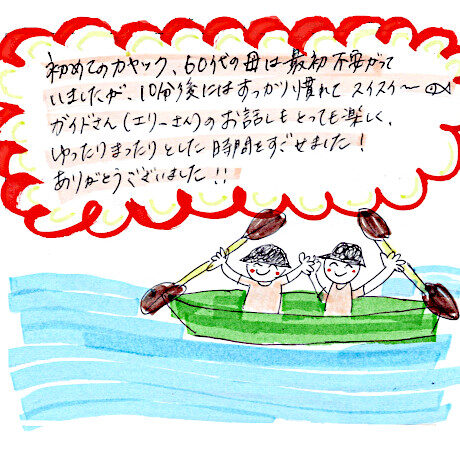 初めてのカヤック、60代の母は最初不安がって
いましたが、10分後にはすっかり慣れてスイスイ〜
ガイドさん(エリーさん)のお話しもとっても楽しく、
ゆったりまったりとした時間をすごせました!
ありがとうございました!!